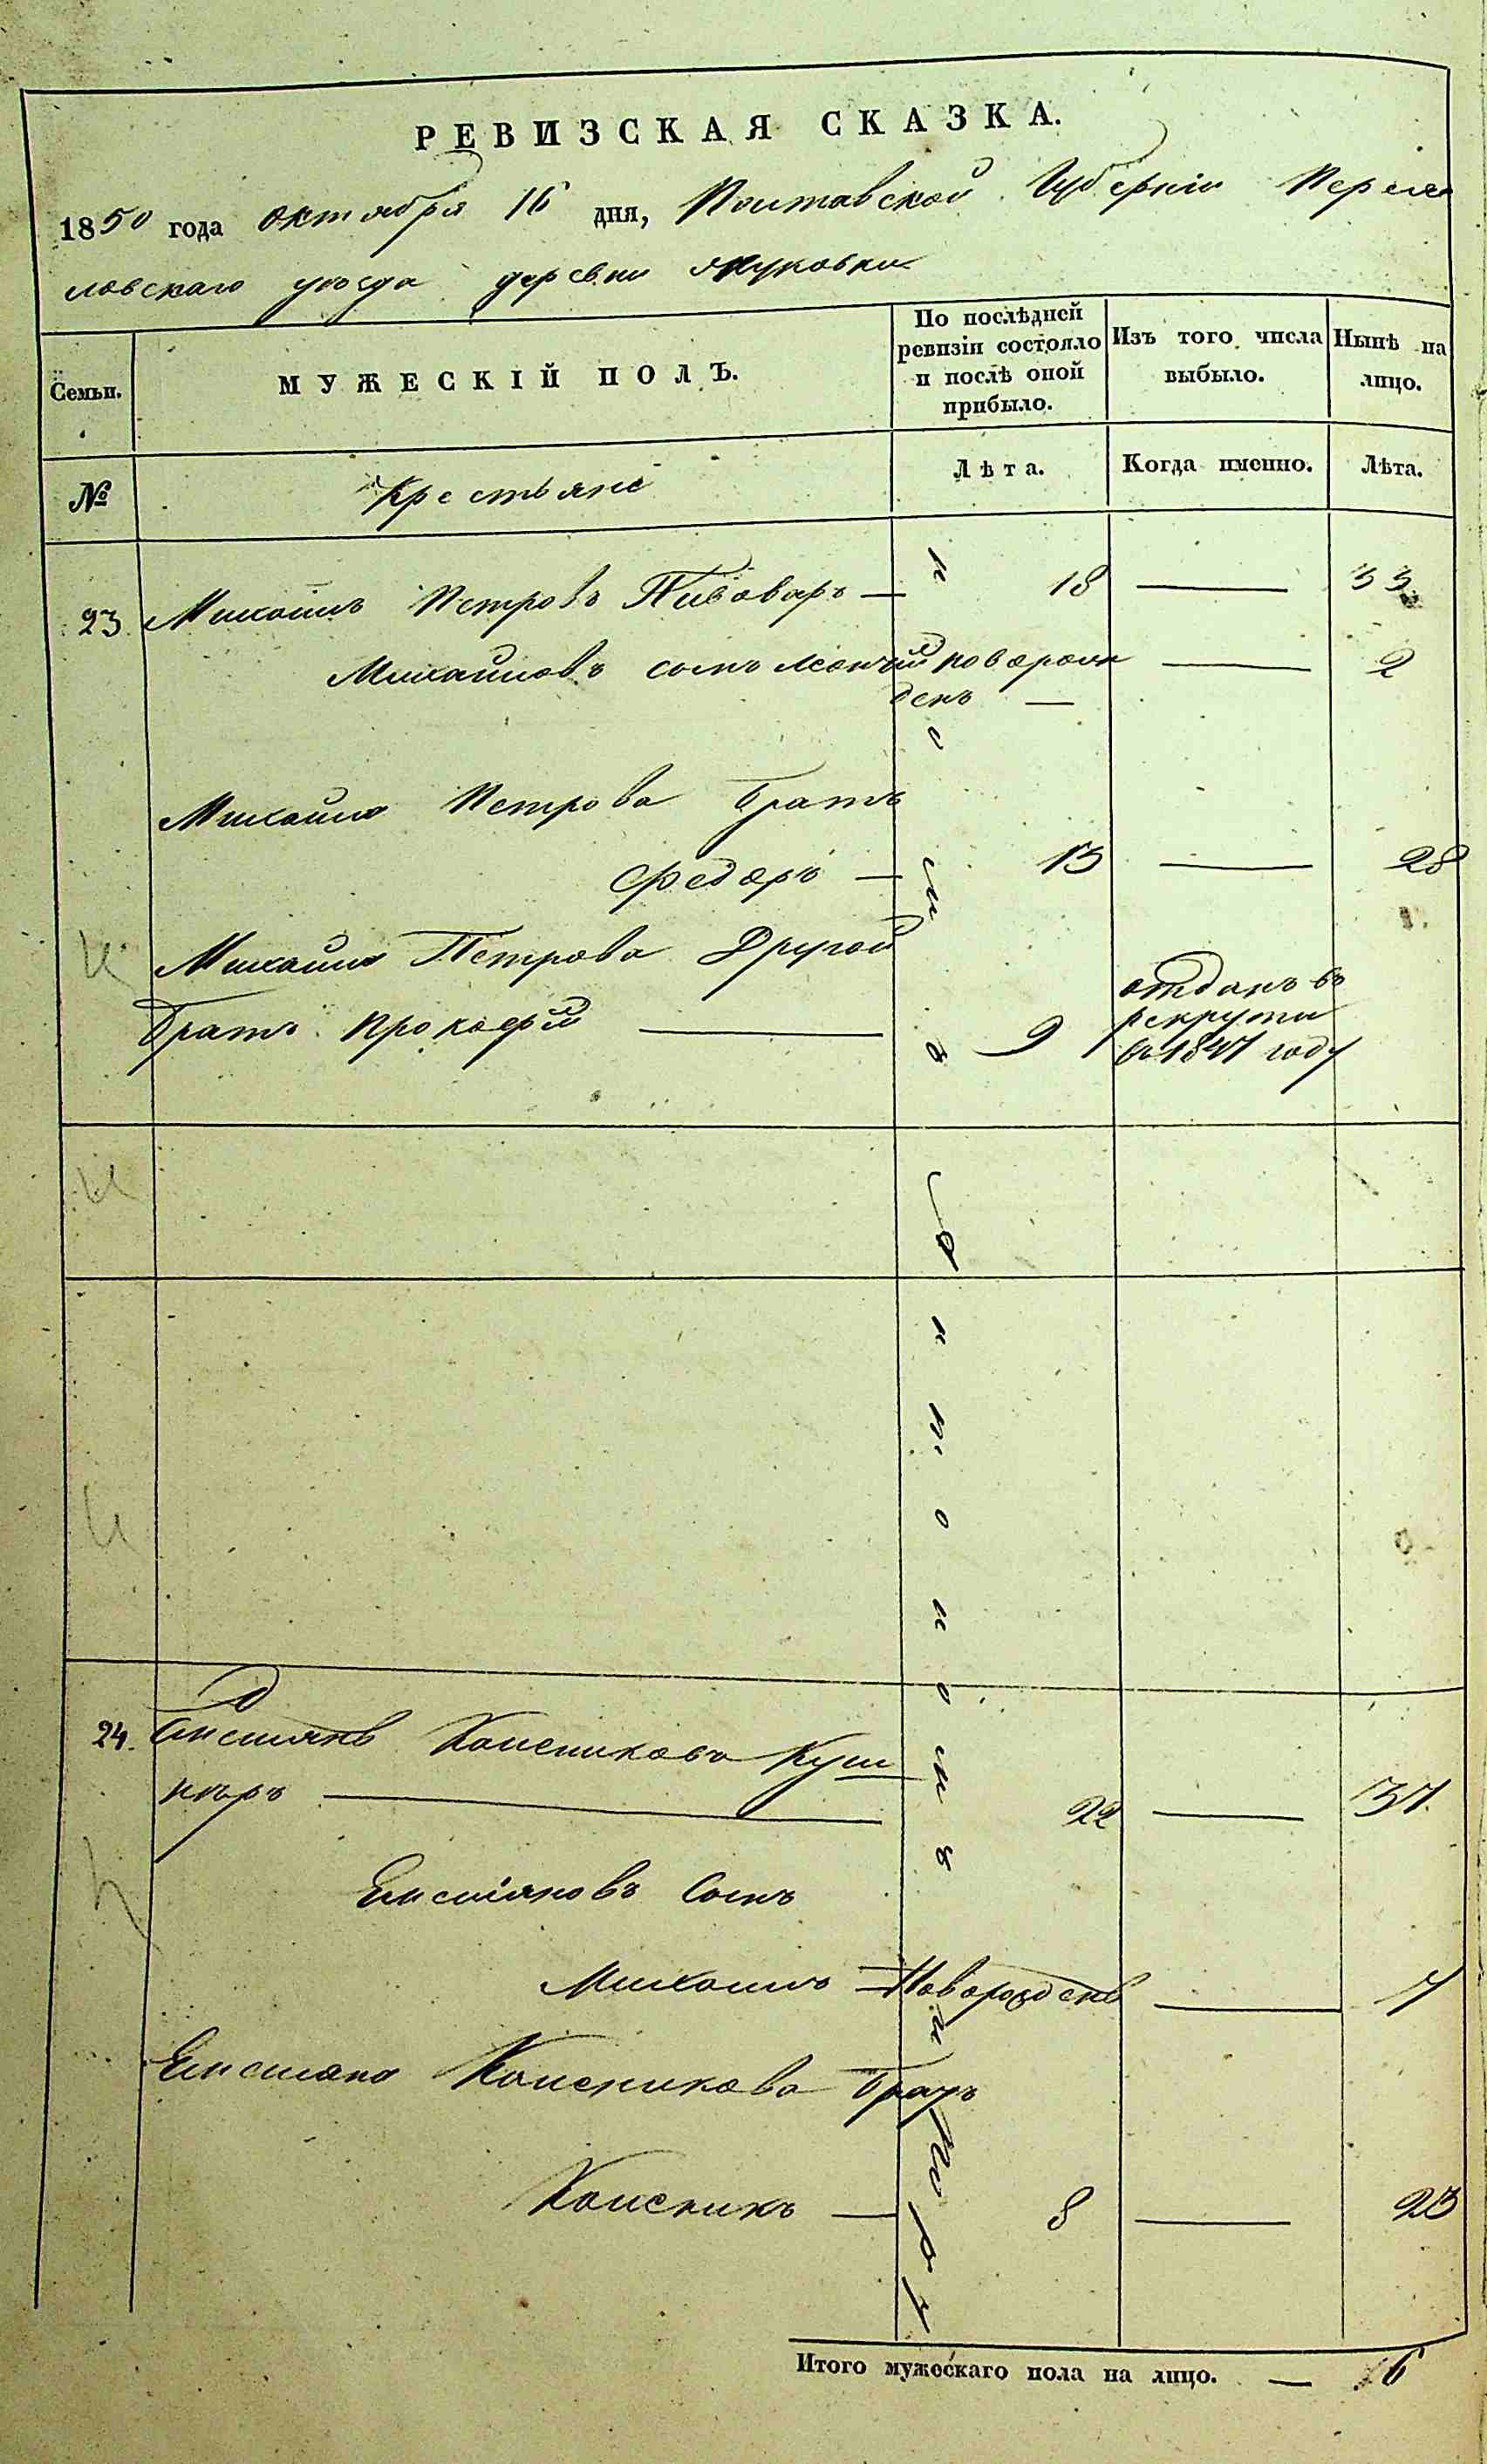 РЕВИЗСКАЯ СКАЗКА.
1850 года октября 16 дня, Полтавской Губерніи Перея
ловскаго уѣзда деревни
Семьи. МУЖЕСКІЙ ПОЛЪ. По послѣдней ревизіи состояло и послѣ оной прибыло. Изъ того числа выбыло. Нынѣ на лицо.
№ Крестьяне Лѣта. Когда именно. Лѣта.
23. Михаилъ Петровъ Пивоваръ — 18 — 33
Михаиловъ сынъ новорож — 2
денъ —
Михаила Петрова братъ
Федоръ — 13 — 28
Михаила Петрова Другой
братъ Прокофій — 9 отданъ въ
рекруты
въ 1847 году
24. Емельянъ Колениковъ Куш
нѣръ — 22 — 37.
Емельяновъ Сынъ
Михаилъ — Новорожденъ — 7
Емельяна Коленикова братъ
Коленикъ — 8 — 23
Итого мужескаго пола на лицо. — 6